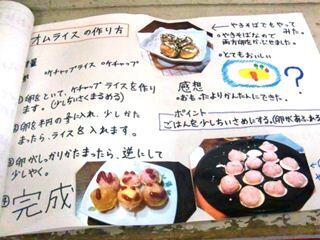 オムライスの作り方
量
・ケチャップライス ・ケチャップ
①卵をといて、ケチャップライスを作り
ます。(少し小さくまるめる)
②卵を半円の穴に入れ、少しかた
まったら、ライスを入れます。
③卵がしっかりかたまったら、逆にして
少しやく。
④完成
←やきそばでもやって
みた。
・やきそばなので
両方卵をかぶせました。
・とてもおいしい
?
感想
・おもったよりかんたんにできた。
ポイント
ごはんを少しちいさめにする。(卵があふれる